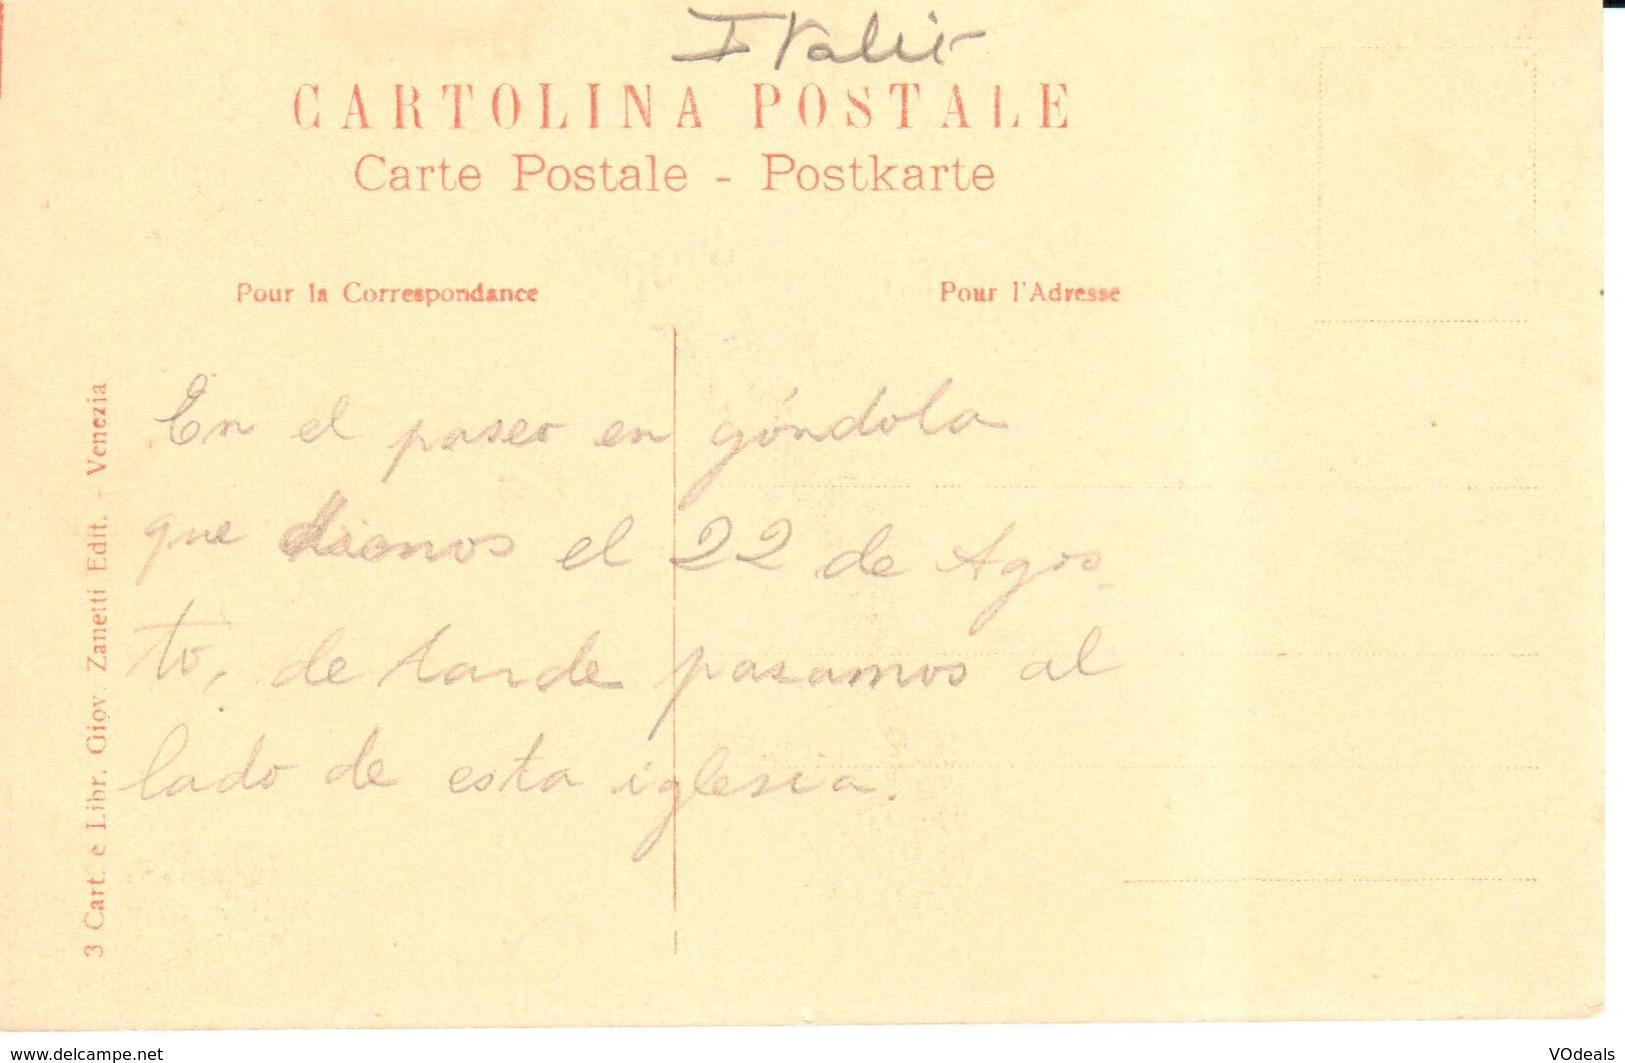 Italie
CARTOLINA POSTALE
Carte Postale - Postkarte
Pour la Correspondance
Pour l'Adresse
En el paseo en góndola
que dimos el 22 de Agos-
to, de tarde pasamos al
lado de esta iglesia.
3 Cart. e Libr. Giov. Zanetti Edit. - Venezia
www.delcampe.net
VOdeals